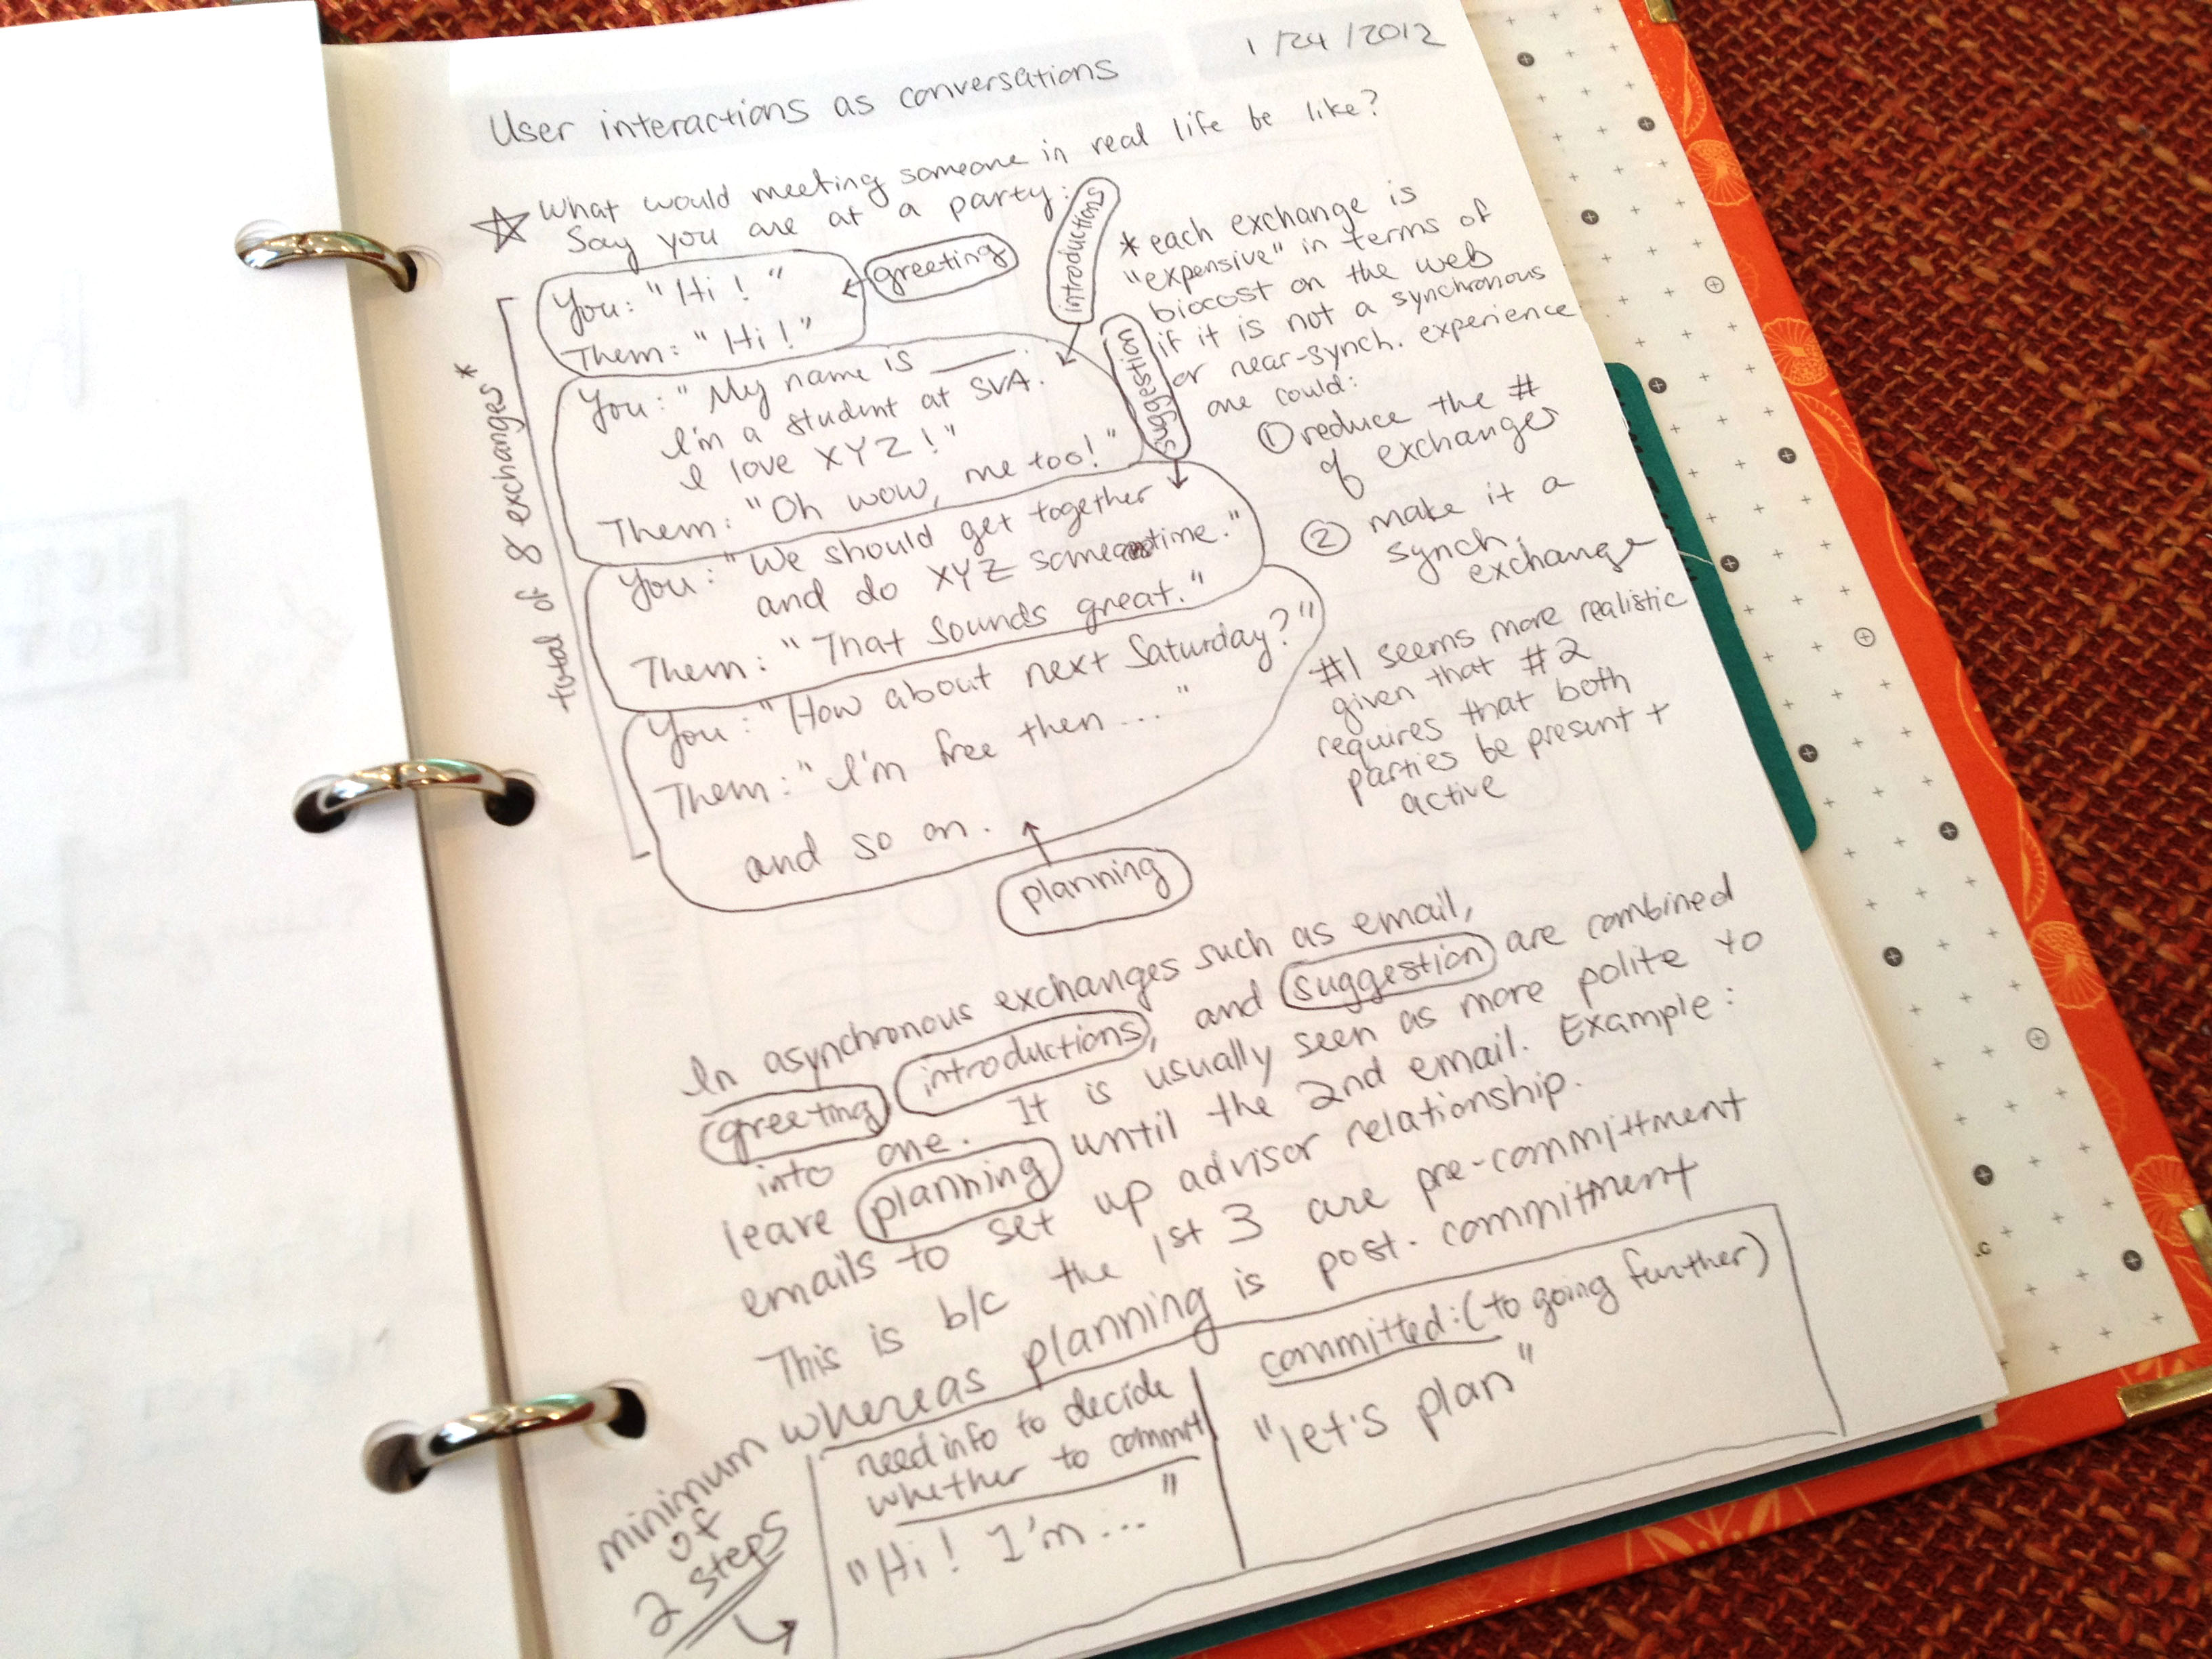 User interactions as conversations
1/24/2012
What would meeting someone in real life be like?
Say you are at a party:
You: "Hi!"
Them: "Hi!"
greeting
introductions
You: "My name is ____.
I'm a student at SVA.
I love XYZ!"
Them: "Oh wow, me too!"
suggestion
You: "We should get together
and do XYZ sometime."
Them: "That sounds great."
You: "How about next Saturday?"
Them: "I'm free then..."
and so on.
planning
total of 8 exchanges*
* each exchange is
"expensive" in terms of
biocost on the web
if it is not a synchronous
or near-synch. experience
one could:
① reduce the #
of exchanges
② make it a
synch.
exchange
#1 seems more realistic
given that #2
requires that both
parties be present +
active
In asynchronous exchanges such as email,
greeting, introductions, and suggestion are combined
into one. It is usually seen as more polite to
leave planning until the 2nd email. Example:
emails to set up advisor relationship.
This is b/c the 1st 3 are pre-committment
whereas planning is post-committment
minimum
of
2 steps
need info to decide
whether to commit
"Hi! I'm..."
committed: (to going further)
"let's plan"